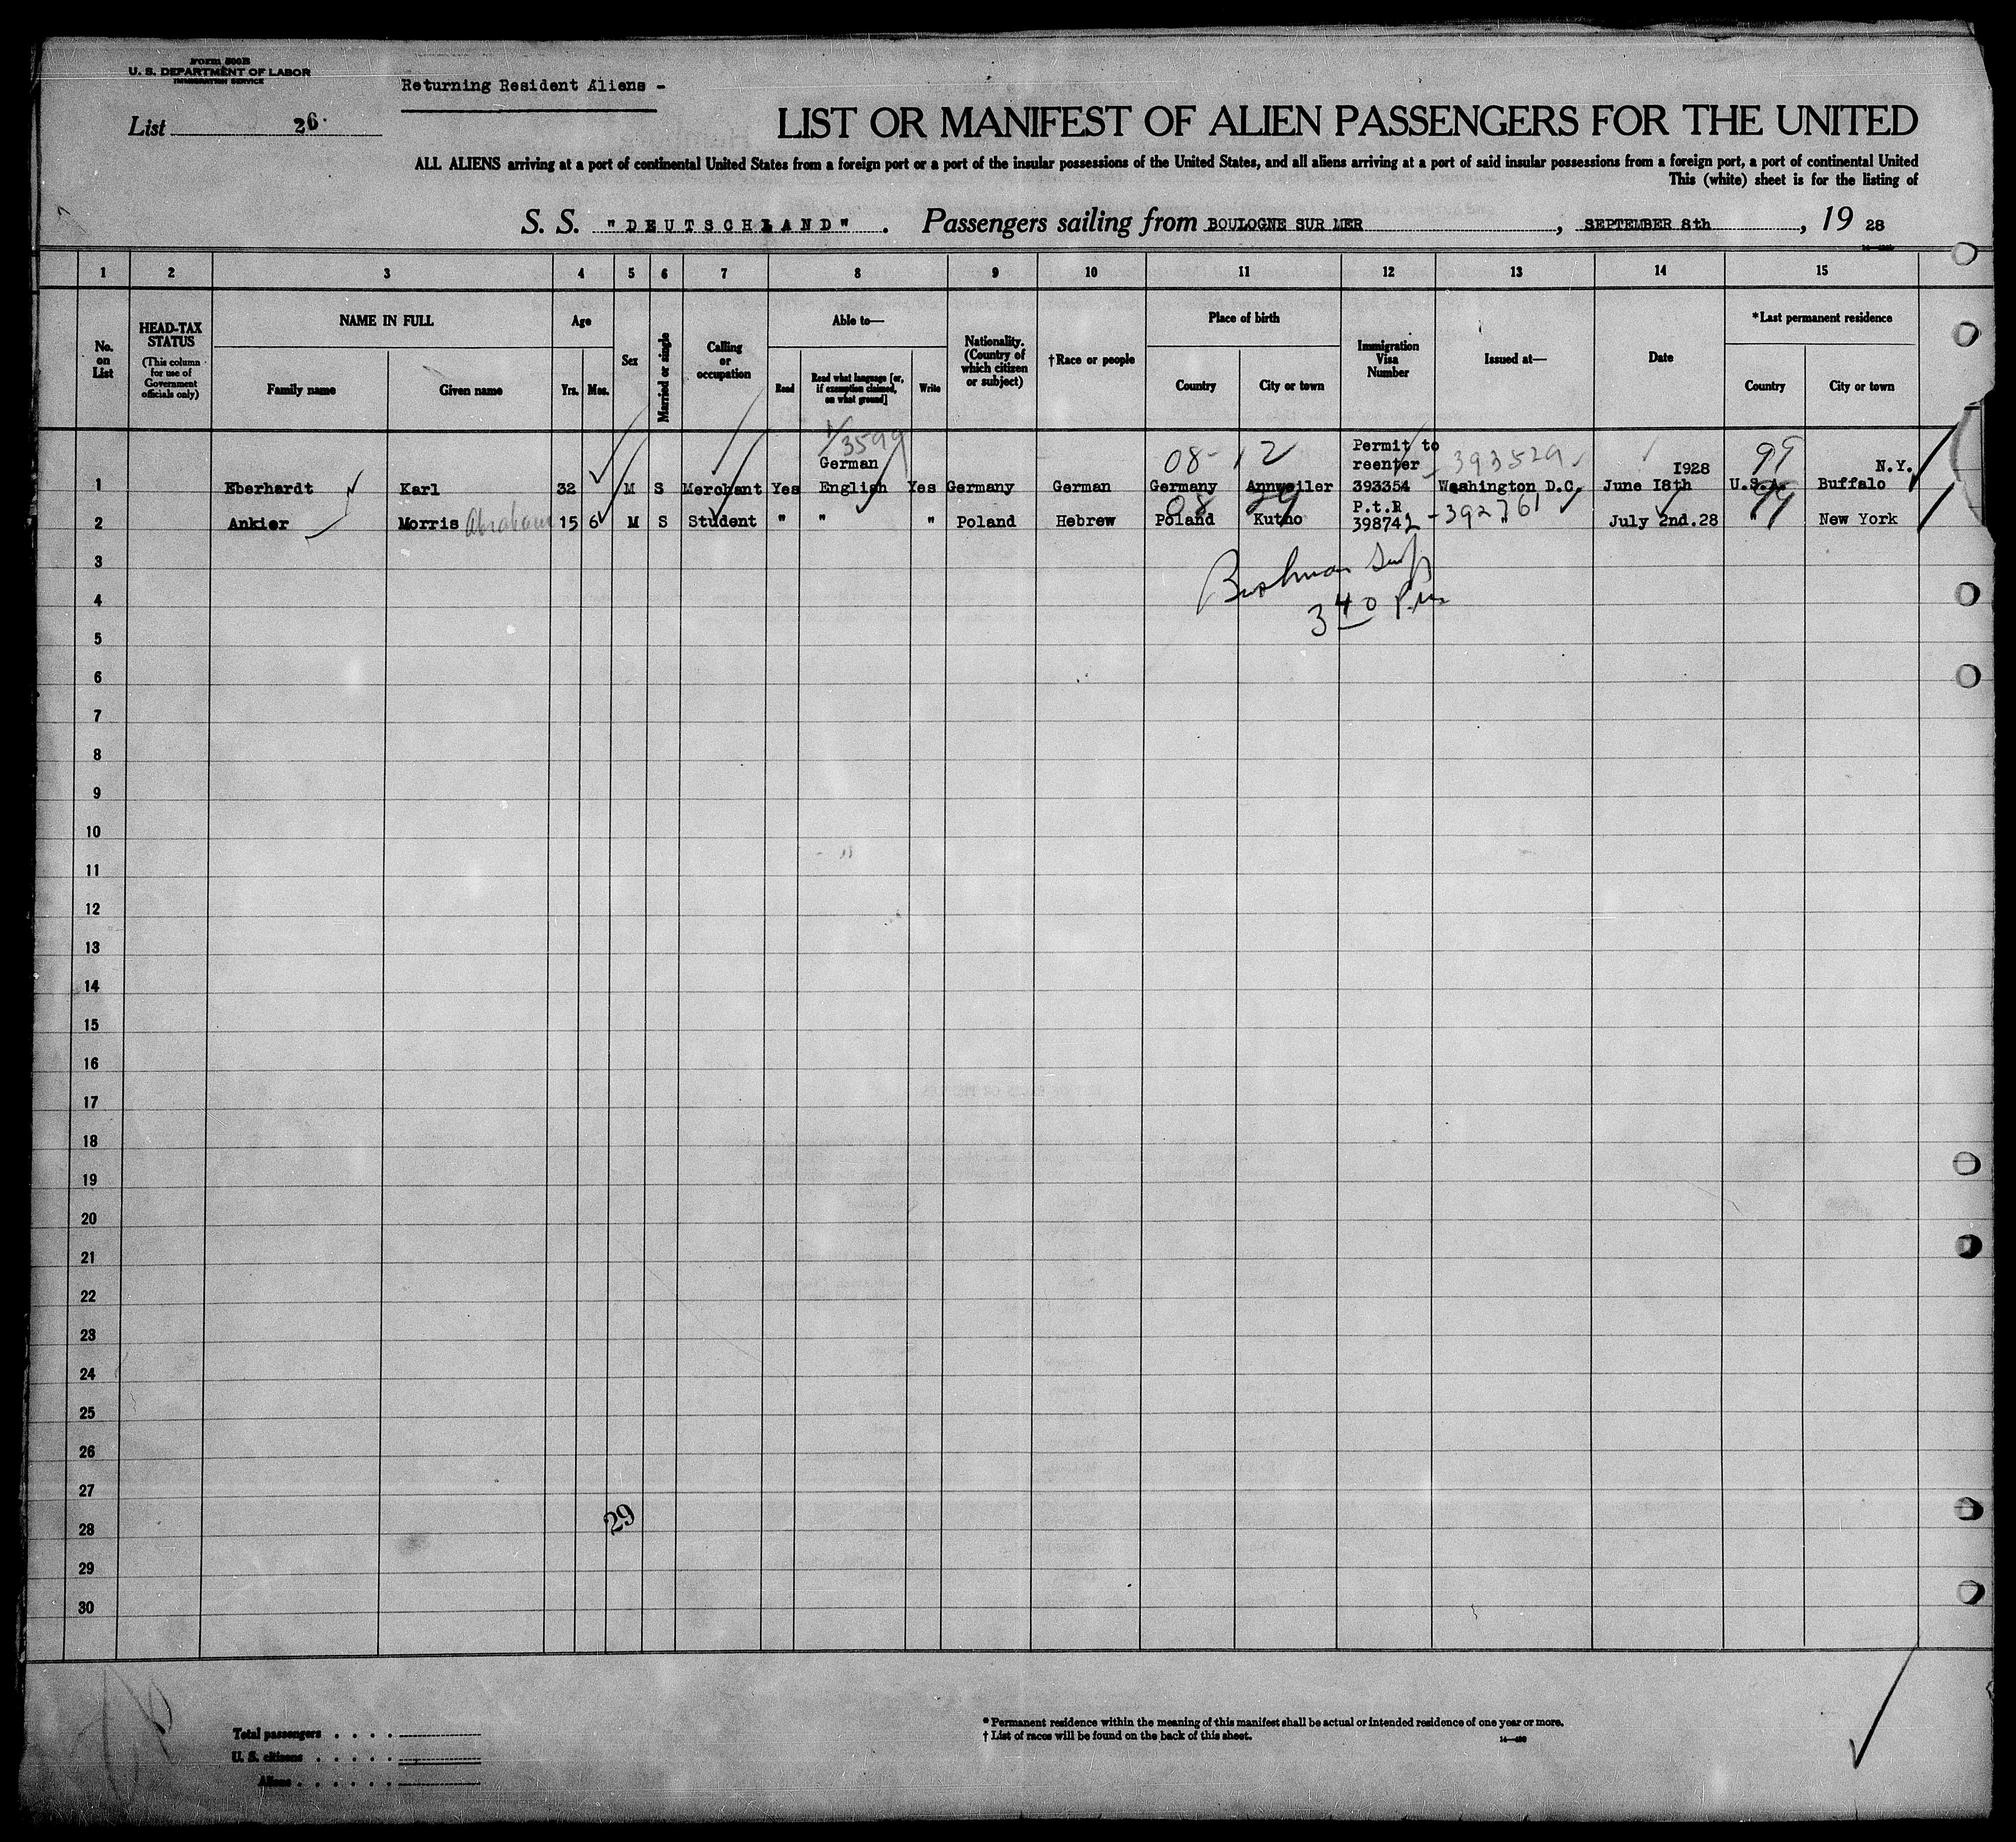 Form 500B
U. S. DEPARTMENT OF LABOR
IMMIGRATION SERVICE
Returning Resident Aliens -
List 26.
LIST OR MANIFEST OF ALIEN PASSENGERS FOR THE UNITED
ALL ALIENS arriving at a port of continental United States from a foreign port or a port of the insular possessions of the United States, and all aliens arriving at a port of said insular possessions from a foreign port, a port of continental United
This (white) sheet is for the listing of
S. S. "DEUTSCHLAND". Passengers sailing from BOULOGNE SUR MER, SEPTEMBER 8th, 19 28
1 2 3 4 5 6 7 8 9 10 11 12 13 14 15
No. on List
HEAD-TAX STATUS
(This column for use of Government officials only)
NAME IN FULL
Family name Given name
Age
Yrs. Mos.
Sex
Married or single
Calling or occupation
Able to—
Read
Read what language [or, if exemption claimed, on what ground]
Write
Nationality. (Country of which citizen or subject)
†Race or people
Place of birth
Country City or town
Immigration Visa Number
Issued at—
Date
*Last permanent residence
Country City or town
1/3599 08- 12 Permit to
German reenter 393529 I928 99 N.Y.
1 Eberhardt Karl 32 M S Merchant Yes English Yes Germany German Germany Annweiler 393354 Washington D.C. June I8th U.S.A. Buffalo
08 29 P.t.R 99
2 Ankier Morris Abraham 15 6 M S Student " " " Poland Hebrew Poland Kutno 398742 -392761 " July 2nd.28 " New York
3
4
340 P.m
5
6
7
8
9
10
11
12
13
14
15
16
17
18
19
20
21
22
23
24
25
26
27
28
29
29
30
Total passengers . . . .
U. S. citizens . . . . .
Aliens . . . . . .
* Permanent residence within the meaning of this manifest shall be actual or intended residence of one year or more.
† List of races will be found on the back of this sheet.